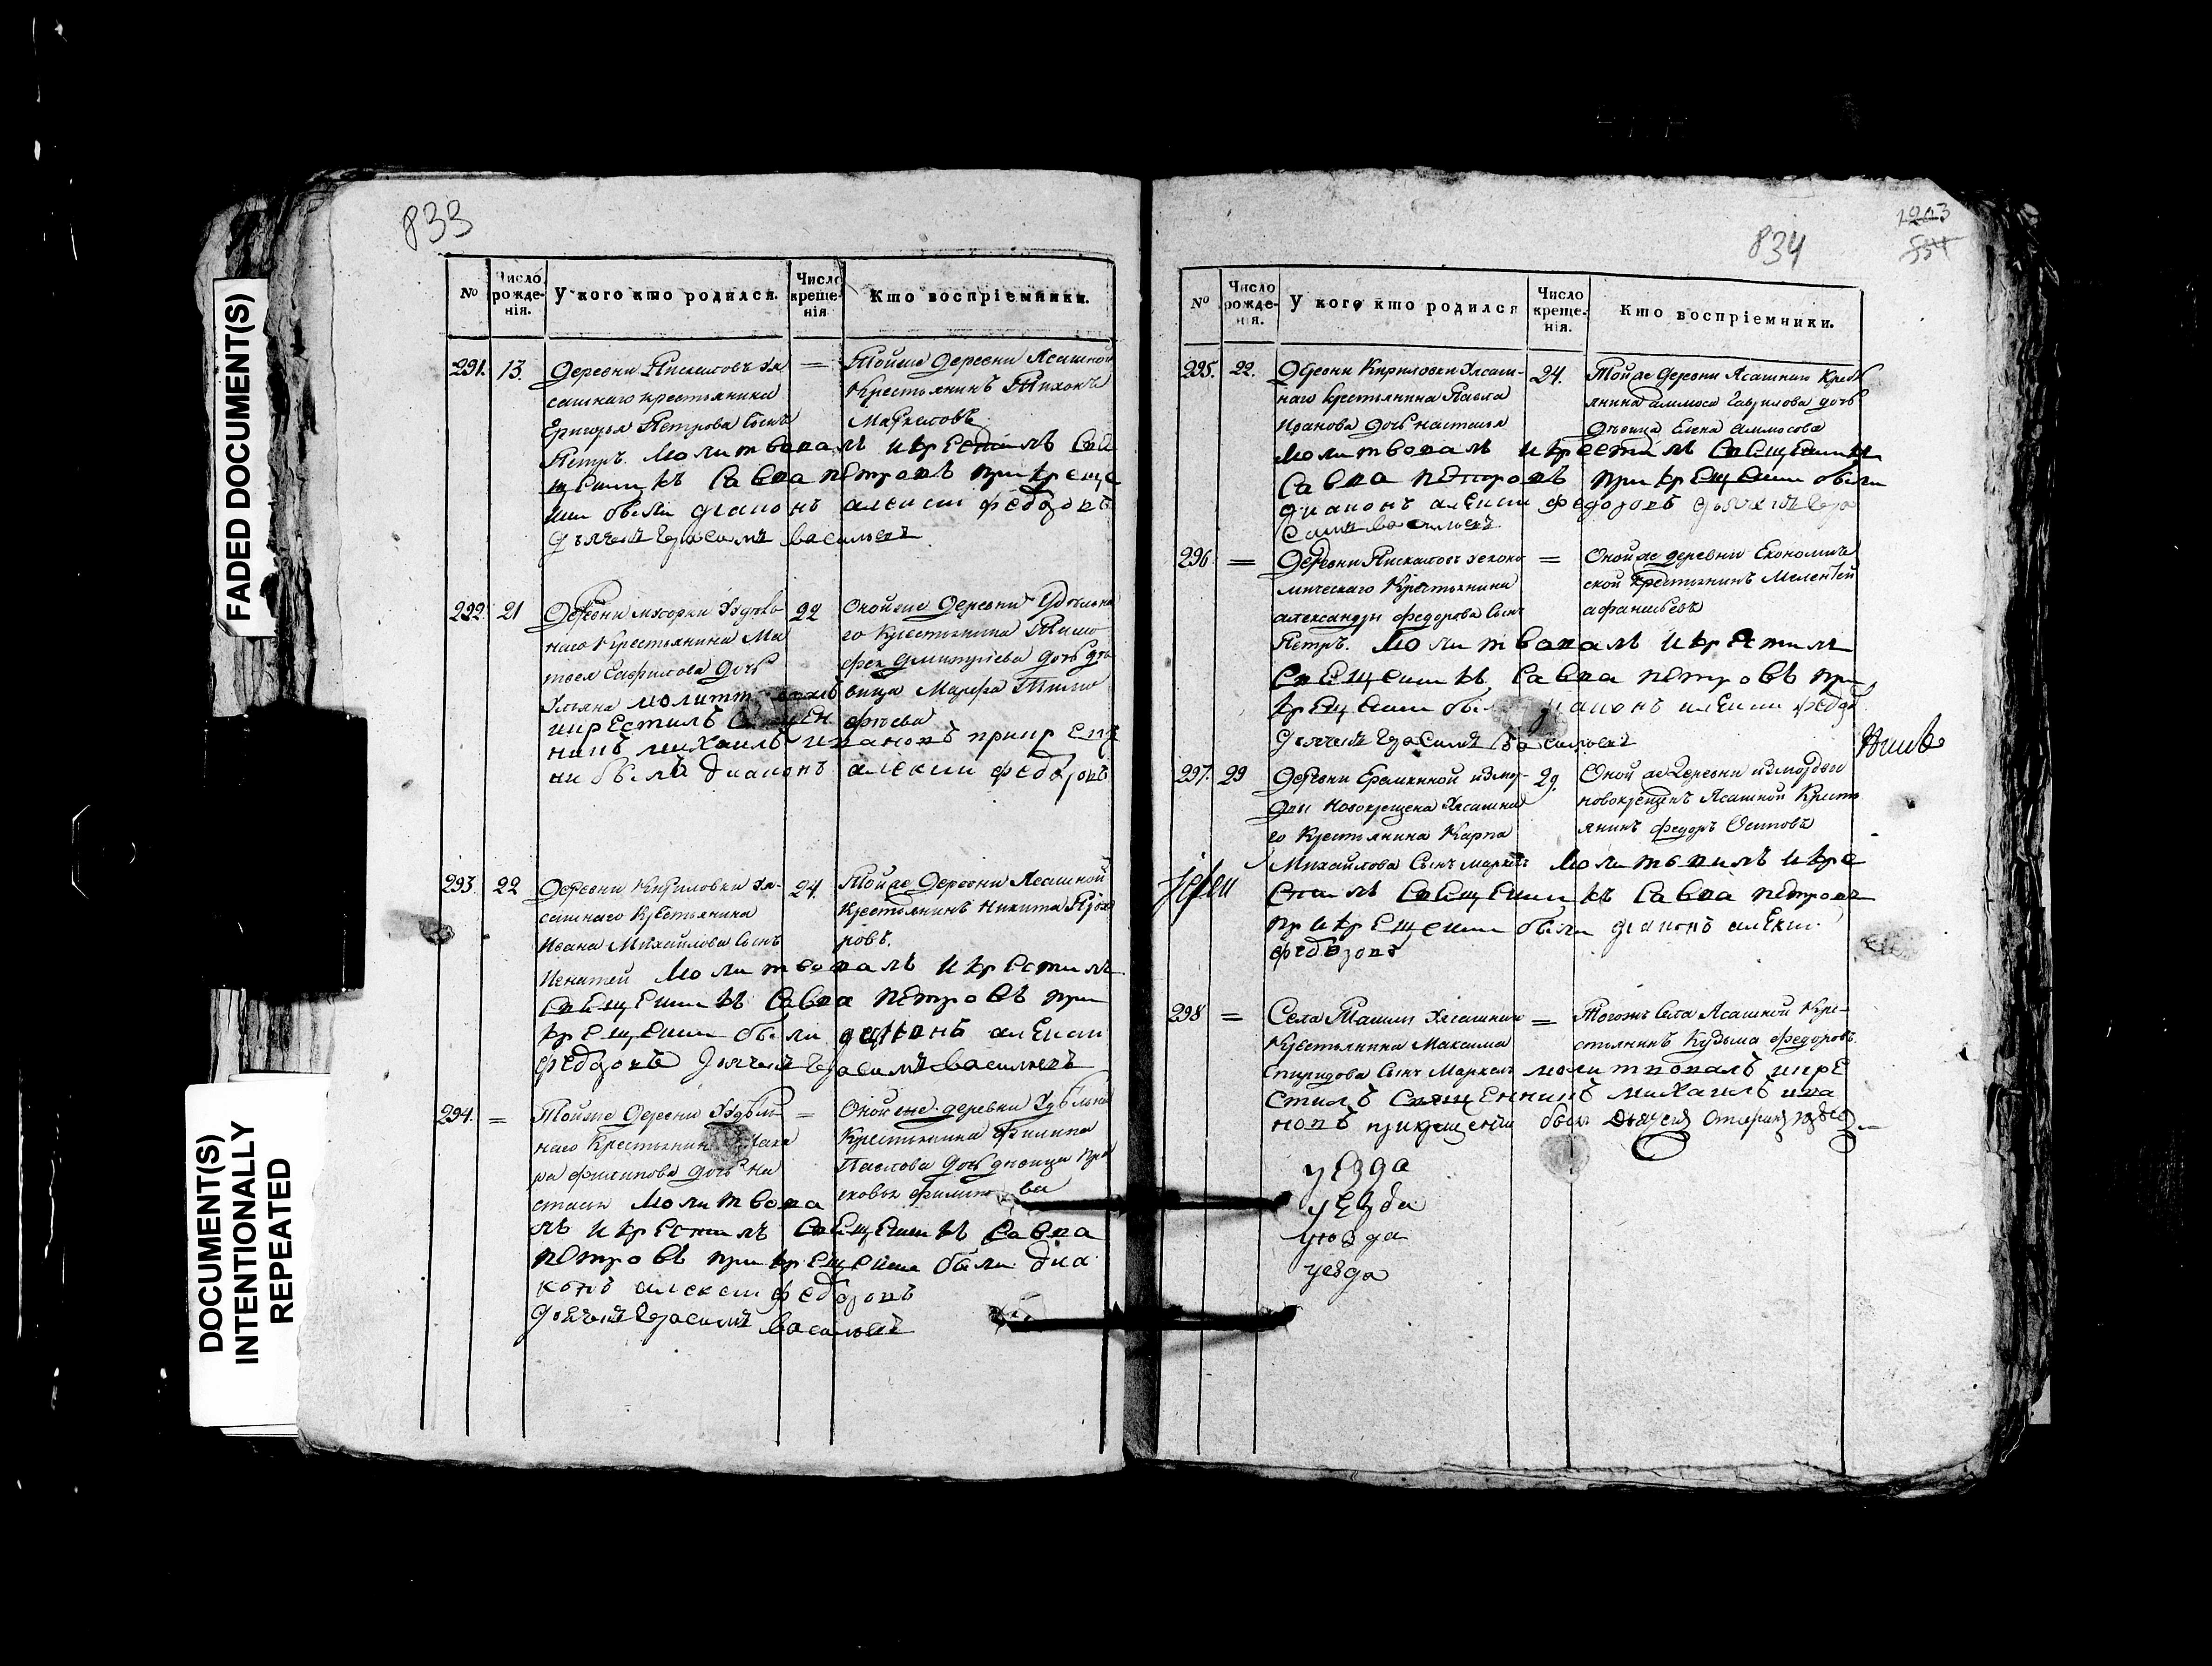 FADED DOCUMENT(S)
DOCUMENT(S)
INTENTIONALLY
REPEATED
833
№
Число рожде-нія.
У кого кто родился.
Число креще-нія
Кто воспріемники.
291. 13.
Деревни
сашнаго крестьянина
Григорья Петрова сынъ
Петръ. молитвовалъ и крестилъ Свя
щенникъ Савва петровъ при креще
нии были диаконъ алексии федоровъ
дьячекъ Герасимъ васильевъ
=
Тойже Деревни Ясашной
Крестьянинъ Тихонъ
292. 21
Деревни
наго Крестьянина Ма
твея Гаврилова дочь
Ульяна
и крестилъ
никъ михаилъ ивановъ при креще
ни былъ диаконъ алексии федоровъ
22
Оной же Деревни Удѣльна
го Крестьянина Тимо
фея Дмитріева дочь дѣ
вица Марфа Тимо
фѣева
293. 22
Деревни Кириловки Уя-
сашнаго Крестьянина
Ивана Михайлова сынъ
Игнатей молитвовалъ и крестилъ
Священникъ Савва петровъ при
крещении были диаконъ алексии
федоровъ дьячекъ Герасимъ васильевъ
24.
Тойже Деревни Ясашной
Крестьянинъ Никита
ровъ.
294. =
Тойже Деревни Уудѣль-
наго Крестьянина
ра филипова дочь на
стасья молитвова
лъ и крестилъ Священникъ Савва
петровъ при крещении были диа
конъ алексии федоровъ
дьячекъ Герасимъ васильевъ
=
Оной же деревни Удѣльна
Крестьянина Филипа
Павлова дочь дѣвица Пра
сковья филипова
834
1203
№
Число рожде-нія.
У кого кто родился
Число креще-нія.
Кто воспріемники.
295. 22.
Деревни Кириловки Уясаш-
наго крестьянина Павла
Иванова дочь настасья
молитвовалъ и крестилъ Священникъ
Савва петровъ при крещении были
диаконъ алексии федоровъ дьячекъ Гера
симъ васильевъ
24.
Тойже деревни Ясашнаго Кресть
янина аммоса Гаврилова дочь
дѣвица Елена аммосова
296 =
Деревни
мическаго Крестьянина
александры федорова сынъ
Петръ. молитвовалъ и крестилъ
Священникъ Савва петровъ при
крещении были диаконъ алексии федо
дьячекъ Герасимъ васильевъ
=
Оной же деревни Економиче
ской Крестьянинъ Мелентей
афанасьевъ
297. 29
Деревни Еремкиной измор-
двы новокрещена Уясашна
го Крестьянина Карпа
Михайлова сынъ маркелъ молитвовалъ и кре
стилъ Священникъ Савва петровъ
при крещении были диаконъ алексии
федоровъ
29.
Оной же деревни измордвы
новокрещенъ Ясашной Кресть
янинъ федоръ Осиповъ
298 =
Села Ташлы Уясашнаго
Крестьянина Максима
спиридова сынъ Маркелъ молитвовалъ и кре
стилъ Священникъ михаилъ ива
новъ при крещении былъ
=
Тогожъ села Ясашной Кре-
стьянинъ Кузьма федоровъ.
уезда
уезда
уезда
уезда